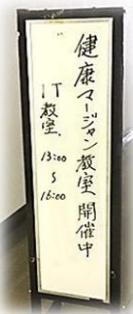 健康マージャン教室開催中
IT教室、
13:00
~
16:00